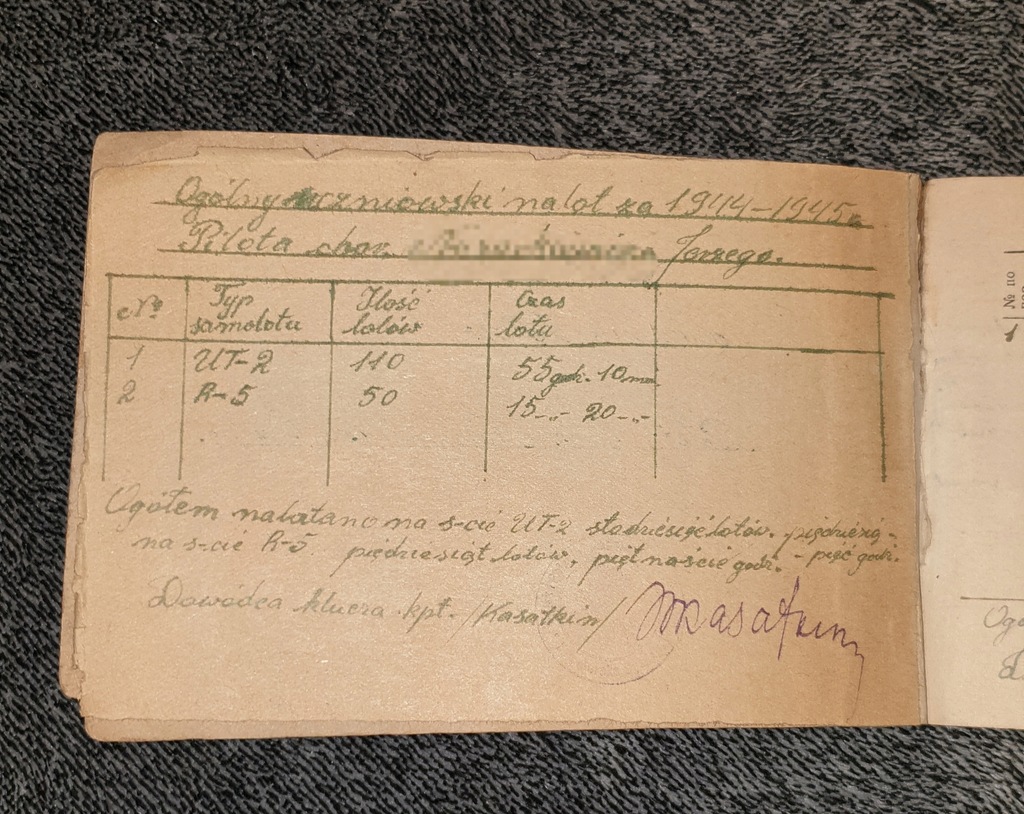 Ogólny uczniowski nalot za 1944-1945r.
Pilota chor. Jerzego.
№ Typ samolotu Ilość lotów Czas lotu
1 UT-2 110 55 godz. 10 min
2 R-5 50 15 -„- 20 -„-
Ogółem nalatano na s-cie UT-2 stodziesięć lotów, pięćdziesią-
na s-cie R-5. piędziesiąt lotów, piętnaście godz. - pięć godz.
Dowódca klucza kpt. /Kasatkin/ Kasatkin
№ по